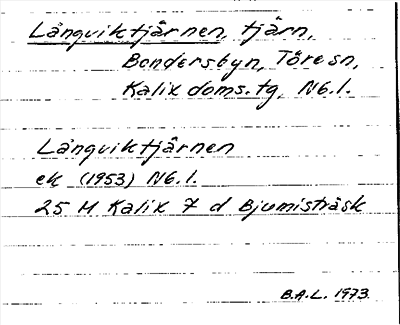 Långviktjärnen, tjärn,
Bondersbyn, Töre sn,
Kalix doms.tg, Nb.l.
Långviktjärnen
ek (1953) Nb.l.
25 M Kalix 7 d Bjumisträsk
B.A.L. 1973